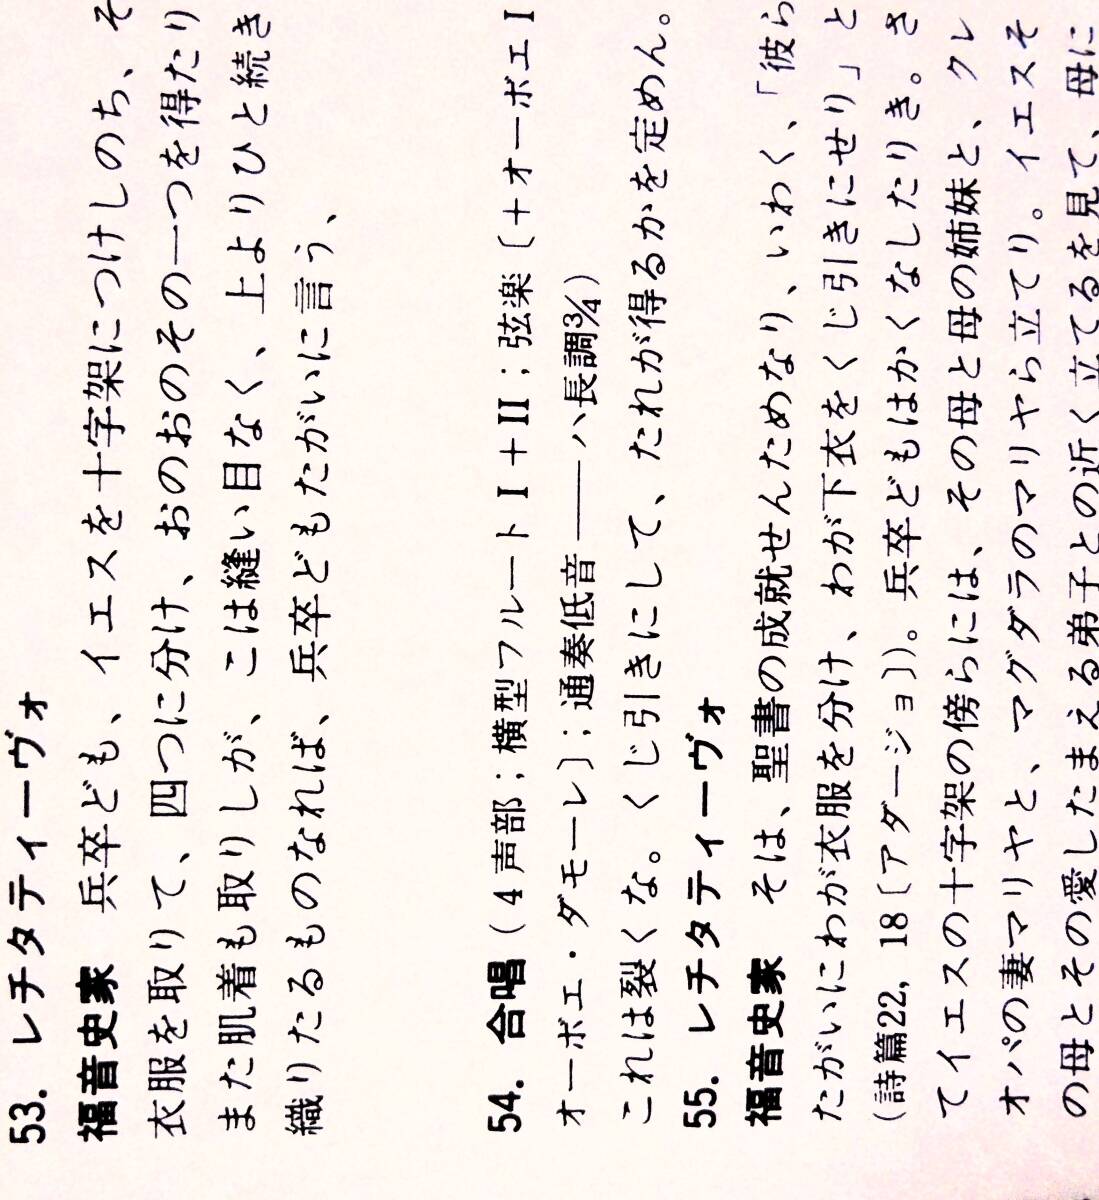 53. レチタティーヴォ
福音史家 兵卒ども、イエスを十字架につけしのち、そ
衣服を取りて、四つに分け、おのおのその一つを得たり
また肌着も取りしが、こは縫い目なく、上よりひと続き
織りたるものなれば、兵卒どもたがいに言う、
54. 合唱(4声部;横型フルートI+II;弦楽〔+オーボエI
オーボエ・ダモーレ〕;通奏低音――ハ長調3/4)
これは裂くな。くじ引きにして、たれが得るかを定めん。
55. レチタティーヴォ
福音史家 そは、聖書の成就せんためなり、いわく、「彼ら
たがいにわが衣服を分け、わが下衣をくじ引きにせり」と
(詩篇22, 18〔アダージョ〕)。兵卒どもはかくなしたりき。さ
てイエスの十字架の傍らには、その母と母の姉妹と、クレ
オパの妻マリヤと、マグダラのマリヤら立てり。イエスそ
の母とその愛したまえる弟子との近く立てるを見て、母に